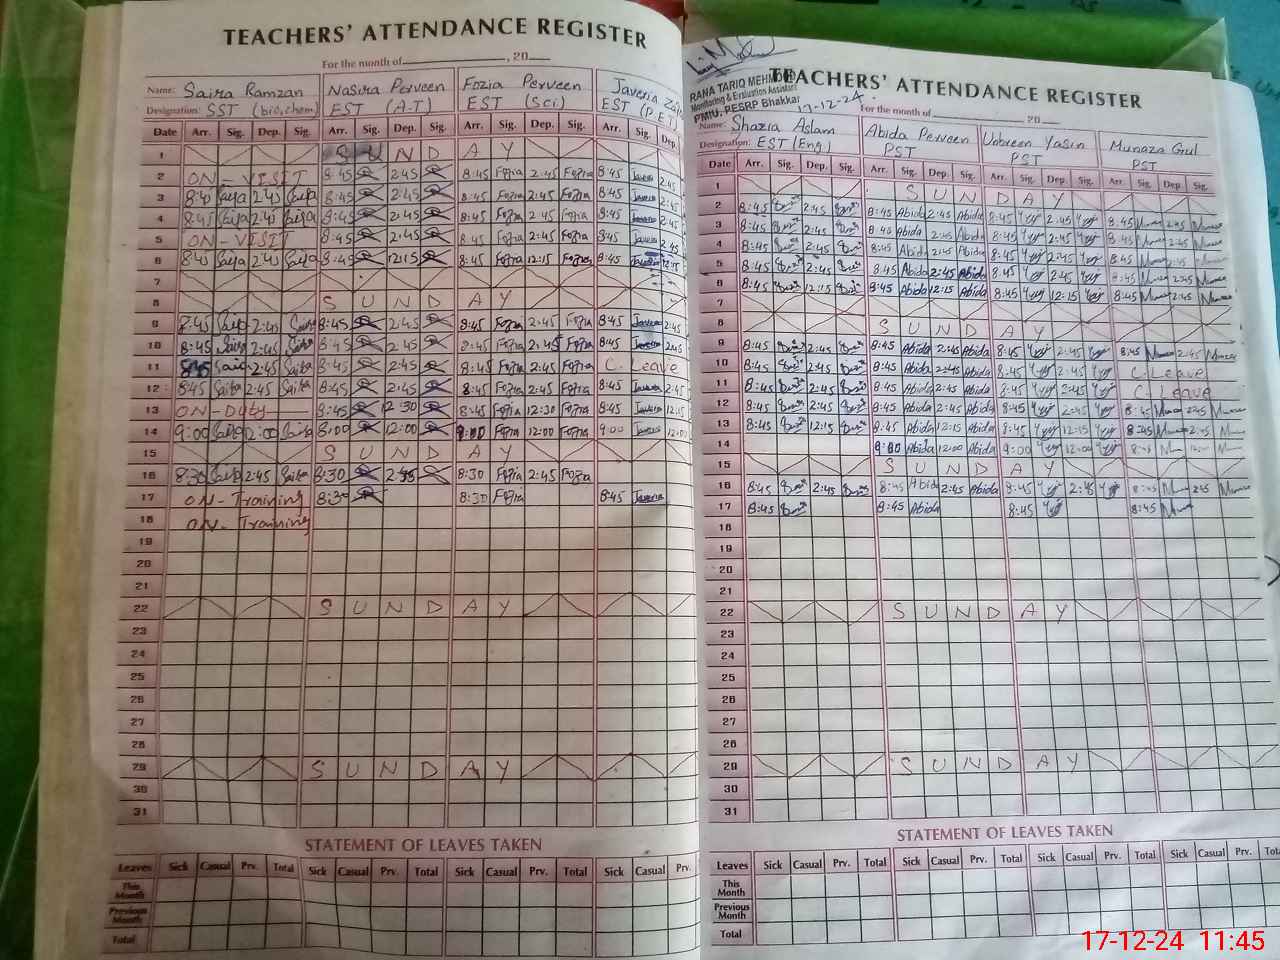 TEACHERS' ATTENDANCE REGISTER
For the month of ________, 20__
Name: Saira Ramzan Nasira Perveen Fozia Perveen Javeria
Designation: SST (bio,chem) EST (A.T) EST (Sci) EST (P.E.T)
Date Arr. Sig. Dep. Sig. Arr. Sig. Dep. Sig. Arr. Sig. Dep. Sig. Arr. Sig. Dep.
1 S U N D A Y
2 ON - VISIT 8:45 2:45 8:45 Fozia 2:45 Fozia 8:45 Javeria 2:45
3 8:45 Saira 2:45 Saira 8:45 2:45 8:45 Fozia 2:45 Fozia 8:45 Javeria 2:45
4 8:45 Saira 2:45 Saira 8:45 2:45 8:45 Fozia 2:45 Fozia 8:45 Javeria 2:45
5 ON - VISIT 8:45 2:45 8:45 Fozia 2:45 Fozia 8:45 Javeria 2:45
6 8:45 Saira 2:45 Saira 8:45 12:15 8:45 Fozia 12:15 Fozia 8:45 Javeria 12:15
7
8 S U N D A Y
9 8:45 Saira 2:45 Saira 8:45 2:45 8:45 Fozia 2:45 Fozia 8:45 Javeria 2:45
10 8:45 Saira 2:45 Saira 8:45 2:45 8:45 Fozia 2:45 Fozia 8:45 Javeria 2:45
11 8:45 Saira 2:45 Saira 8:45 2:45 8:45 Fozia 2:45 Fozia C. Leave
12 8:45 Saira 2:45 Saira 8:45 2:45 8:45 Fozia 2:45 Fozia 8:45 Javeria 2:45
13 ON - Duty 8:45 12:30 8:45 Fozia 12:30 Fozia 8:45 Javeria 12:15
14 9:00 Saira 12:00 Saira 9:00 12:00 Fozia 12:00 Fozia 9:00 Javeria 12:00
15 S U N D A Y
16 8:30 Saira 2:45 Saira 8:30 2:45 8:30 Fozia 2:45 Fozia
17 ON - Training 8:30 8:30 Fozia 8:45 Javeria
18 ON - Training
19
20
21
22 S U N D A Y
23
24
25
26
27
28
29 S U N D A Y
30
31
STATEMENT OF LEAVES TAKEN
Leaves Sick Casual Prv. Total Sick Casual Prv. Total Sick Casual Prv. Total Sick Casual Prv.
This Month
Previous Month
Total
RANA TARIQ MEHMOOD
Monitoring & Evaluation Assistant
PMIU, PESRP Bhakkar
17-12-24
TEACHERS' ATTENDANCE REGISTER
For the month of ________ 20__
Name: Shazia Aslam Abida Perveen Unbreen Yasin Munaza Gul
Designation: EST (Eng) PST PST PST
Date Arr. Sig. Dep. Sig. Arr. Sig. Dep. Sig. Arr. Sig. Dep. Sig. Arr. Sig. Dep. Sig.
1 S U N D A Y
2 8:45 2:45 8:45 Abida 2:45 Abida 8:45 2:45 8:45 2:45
3 8:45 2:45 8:45 Abida 2:45 Abida 8:45 2:45 8:45 2:45
4 8:45 2:45 8:45 Abida 2:45 Abida 8:45 2:45 8:45 2:45
5 8:45 2:45 8:45 Abida 2:45 Abida 8:45 2:45 8:45 2:45
6 8:45 12:15 8:45 Abida 12:15 Abida 8:45 12:15 8:45 2:45
7
8 S U N D A Y
9 8:45 2:45 8:45 Abida 2:45 Abida 8:45 2:45 8:45 2:45
10 8:45 2:45 8:45 Abida 2:45 Abida 8:45 2:45 C. Leave
11 8:45 2:45 8:45 Abida 2:45 Abida 8:45 2:45 C. Leave
12 8:45 2:45 8:45 Abida 2:45 Abida 8:45 2:45 8:45 2:45
13 8:45 12:15 8:45 Abida 12:15 Abida 8:45 12:15 8:45 2:45
14 9:00 Abida 12:00 Abida 9:00 12:00
15 S U N D A Y
16 8:45 2:45 8:45 Abida 2:45 Abida 8:45 2:45 8:45 2:45
17 8:45 8:45 Abida 8:45 8:45
18
19
20
21
22 S U N D A Y
23
24
25
26
27
28
29 S U N D A Y
30
31
STATEMENT OF LEAVES TAKEN
Leaves Sick Casual Prv. Total Sick Casual Prv. Total Sick Casual Prv. Total Sick Casual Prv.
This Month
Previous Month
Total
17-12-24 11:45